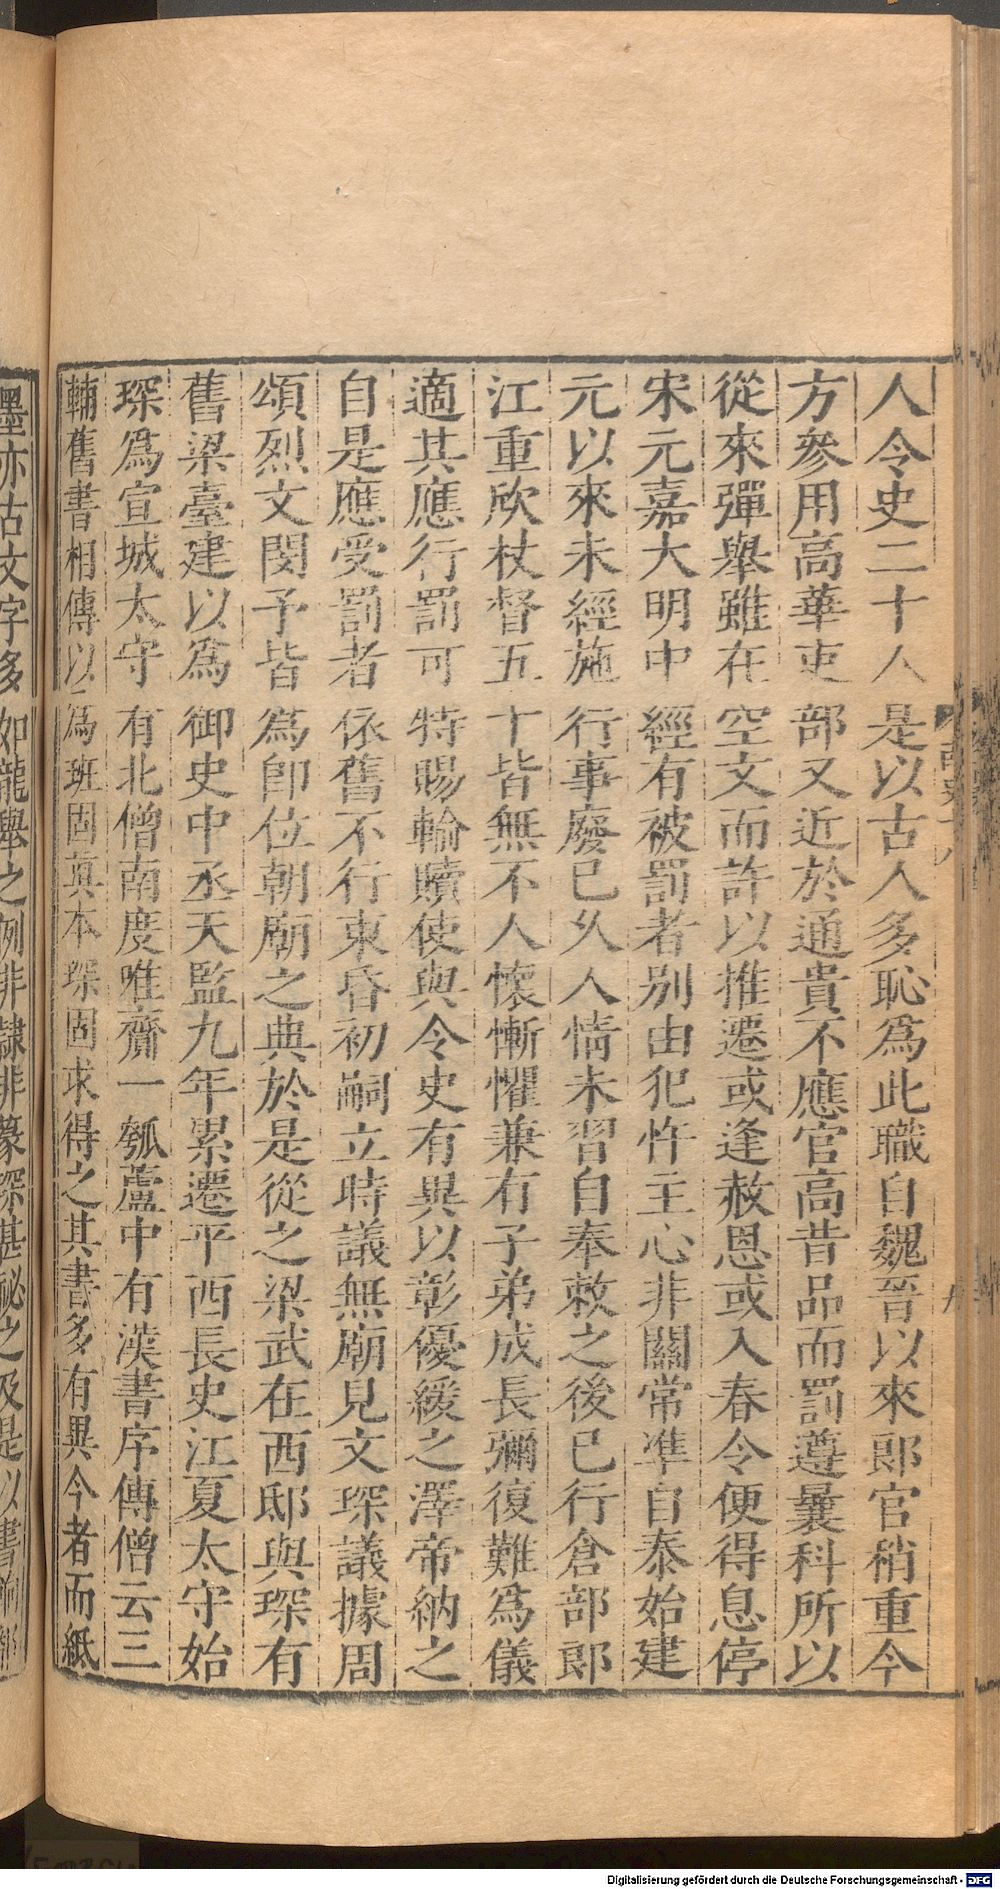 人令史二十人是以古人多恥爲此職自魏晉以來郎官稍重今
方參用高華吏部又近於通貴不應官高昔品而罰遵曩科所以
從來彈舉雖在空文而許以推遷或逢赦恩或入春令便得息停
宋元嘉大明中經有被罰者別由犯忤主心非關常準自泰始建
元以來未經施行事廢已久人情未習自奉敕之後已行倉部郎
江重欣杖督五十皆無不人懷慚懼兼有子弟成長彌復難爲儀
適其應行罰可特賜輸贖使與令史有異以彰優緩之澤帝納之
自是應受罰者依舊不行東昏初嗣立時議無廟見文琛議據周
頌烈文閔予皆爲卽位朝廟之典於是從之梁武在西邸與琛有
舊梁臺建以爲御史中丞天監九年累遷平西長史江夏太守始
琛爲宣城太守有北僧南度唯齎一瓠蘆中有漢書序傳僧云三
輔舊書相傳以爲班固眞本琛固求得之其書多有異今者而紙
墨亦古文字多如龍舉之例非隸非篆琛甚祕之及是以書餉鄱
Digitalisierung gefördert durch die Deutsche Forschungsgemeinschaft - DFG